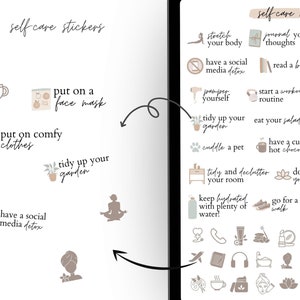 self care stickers
put on a
face mask
put on comfy
clothes
tidy up your
garden
have a social
media detox
self care
stretch
your body
journal your
thoughts
have a social
media detox
read a b
pamper
yourself
start a workout
routine
tidy up your
garden
eat your salad
cuddle a pet
have a cu
hot choco
tidy and declutter
your room
do
yo
keep hydrated
with plenty of
water!
go for a
walk